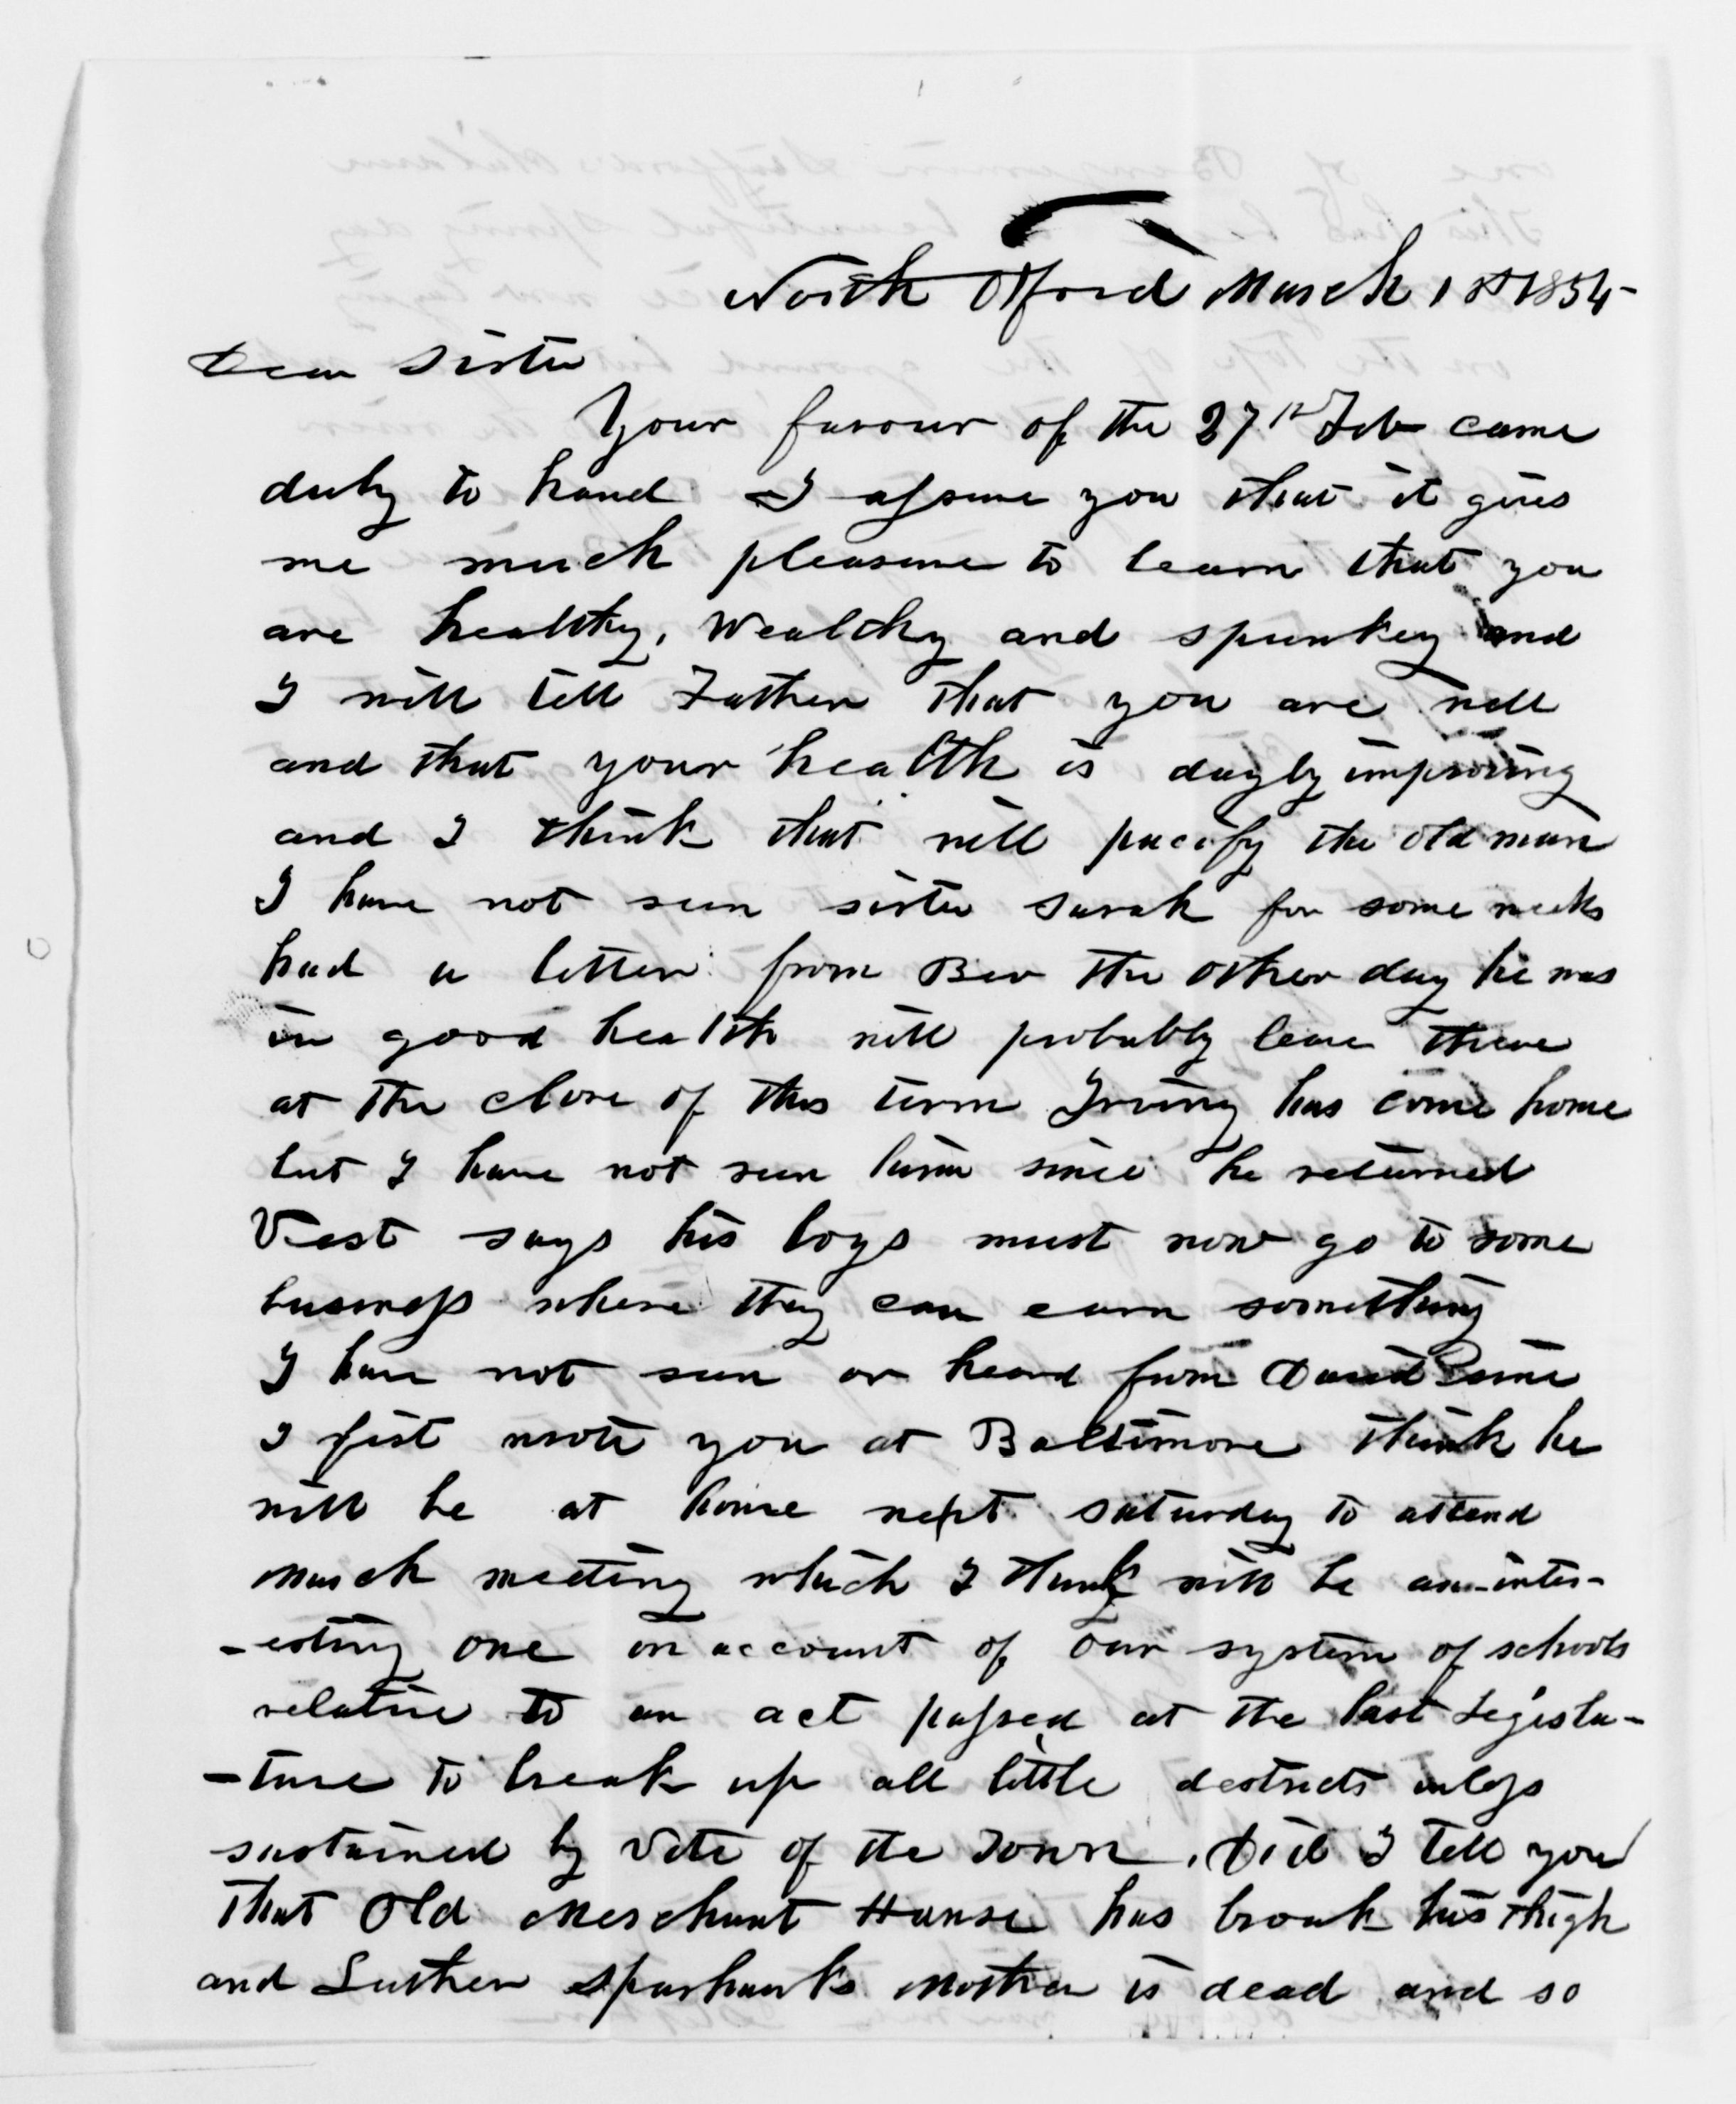 North Oxford March 1st 1854-
Dear Sister
Your favour of the 27th Feb came
duly to hand I assure you that it gives
me much pleasure to learn that you
are healthy, Wealthy and spunkey and
I will tell Father that you are well
and that your health is dayly improving
and I think that will pacify the old man
I have not seen sister Sarah for some weeks
had a letter from the other day he was
in good health will probably leave there
at the close of this term Irving has come home
but I have not seen him since he returned
Vest says his boys must now go to some
business where they can earn something
I have not seen or heard from David since
I fist wrote you at Baltimore think he
will be at home next Saturday to attend
March meeting which I think will be an-inter-
-esting one on account of our system of schools
relative to an act passed at the last Legisla-
-ture to break up all little destricts unless
sustained by vote of the Town. Did I tell you
that Old Merchant has broak his thigh
and Luther Sparhawks Mother is dead and so